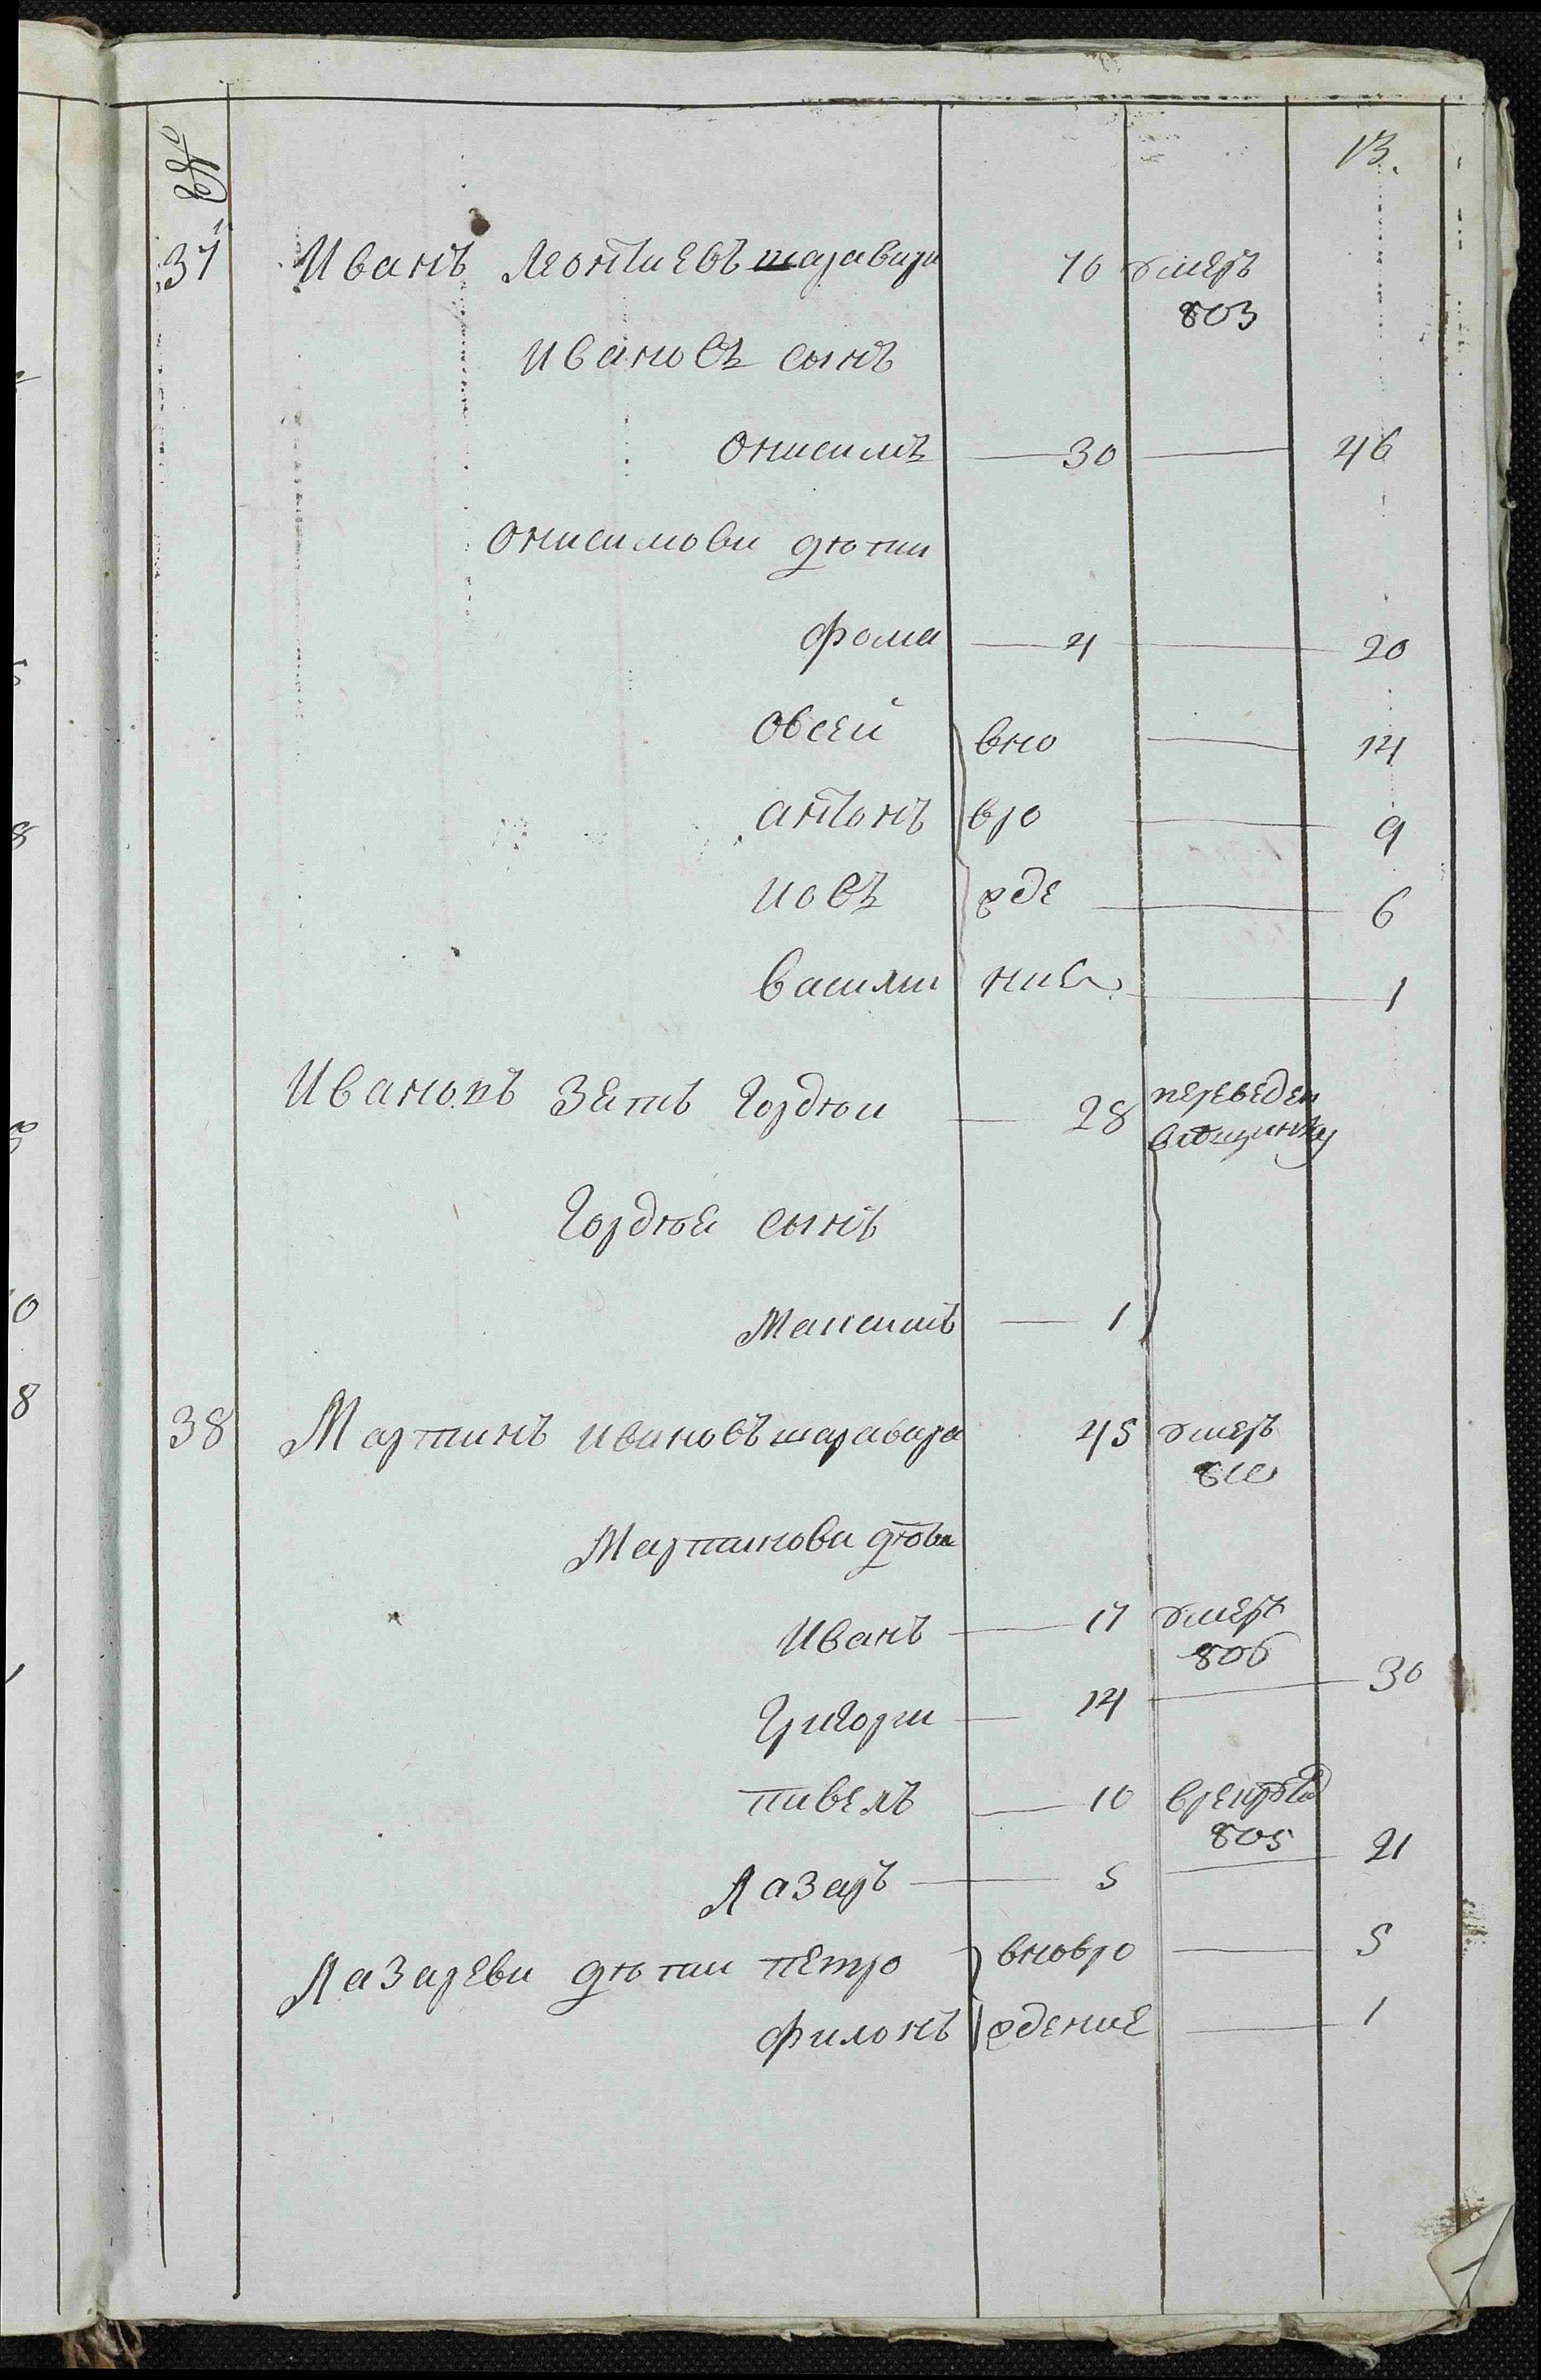 №
13.
37 Иванъ Леонтиевъ шаравара 70 умеръ
803
Ивановъ сынъ
Онисимъ — 30 — 46
Онисимови дѣти
Фома — 4 — 20
Овсей вно — 14
антонъ вро — 9
Иовъ жде — 6
василии ние — 1
Ивановъ Зять Гордѣи — 28 переведен
Гордѣя сынъ
Максимъ — 1
38 Мартинъ Ивановъ шаравара 45 умеръ
Мартинови дѣти
Иванъ — 17 умеръ
806
Григории — 14 — 30
павелъ — 10 врекруты
805
Лазаръ — 5 — 21
Лазареви дѣти петро вновро — 5
филонъ ждение — 1